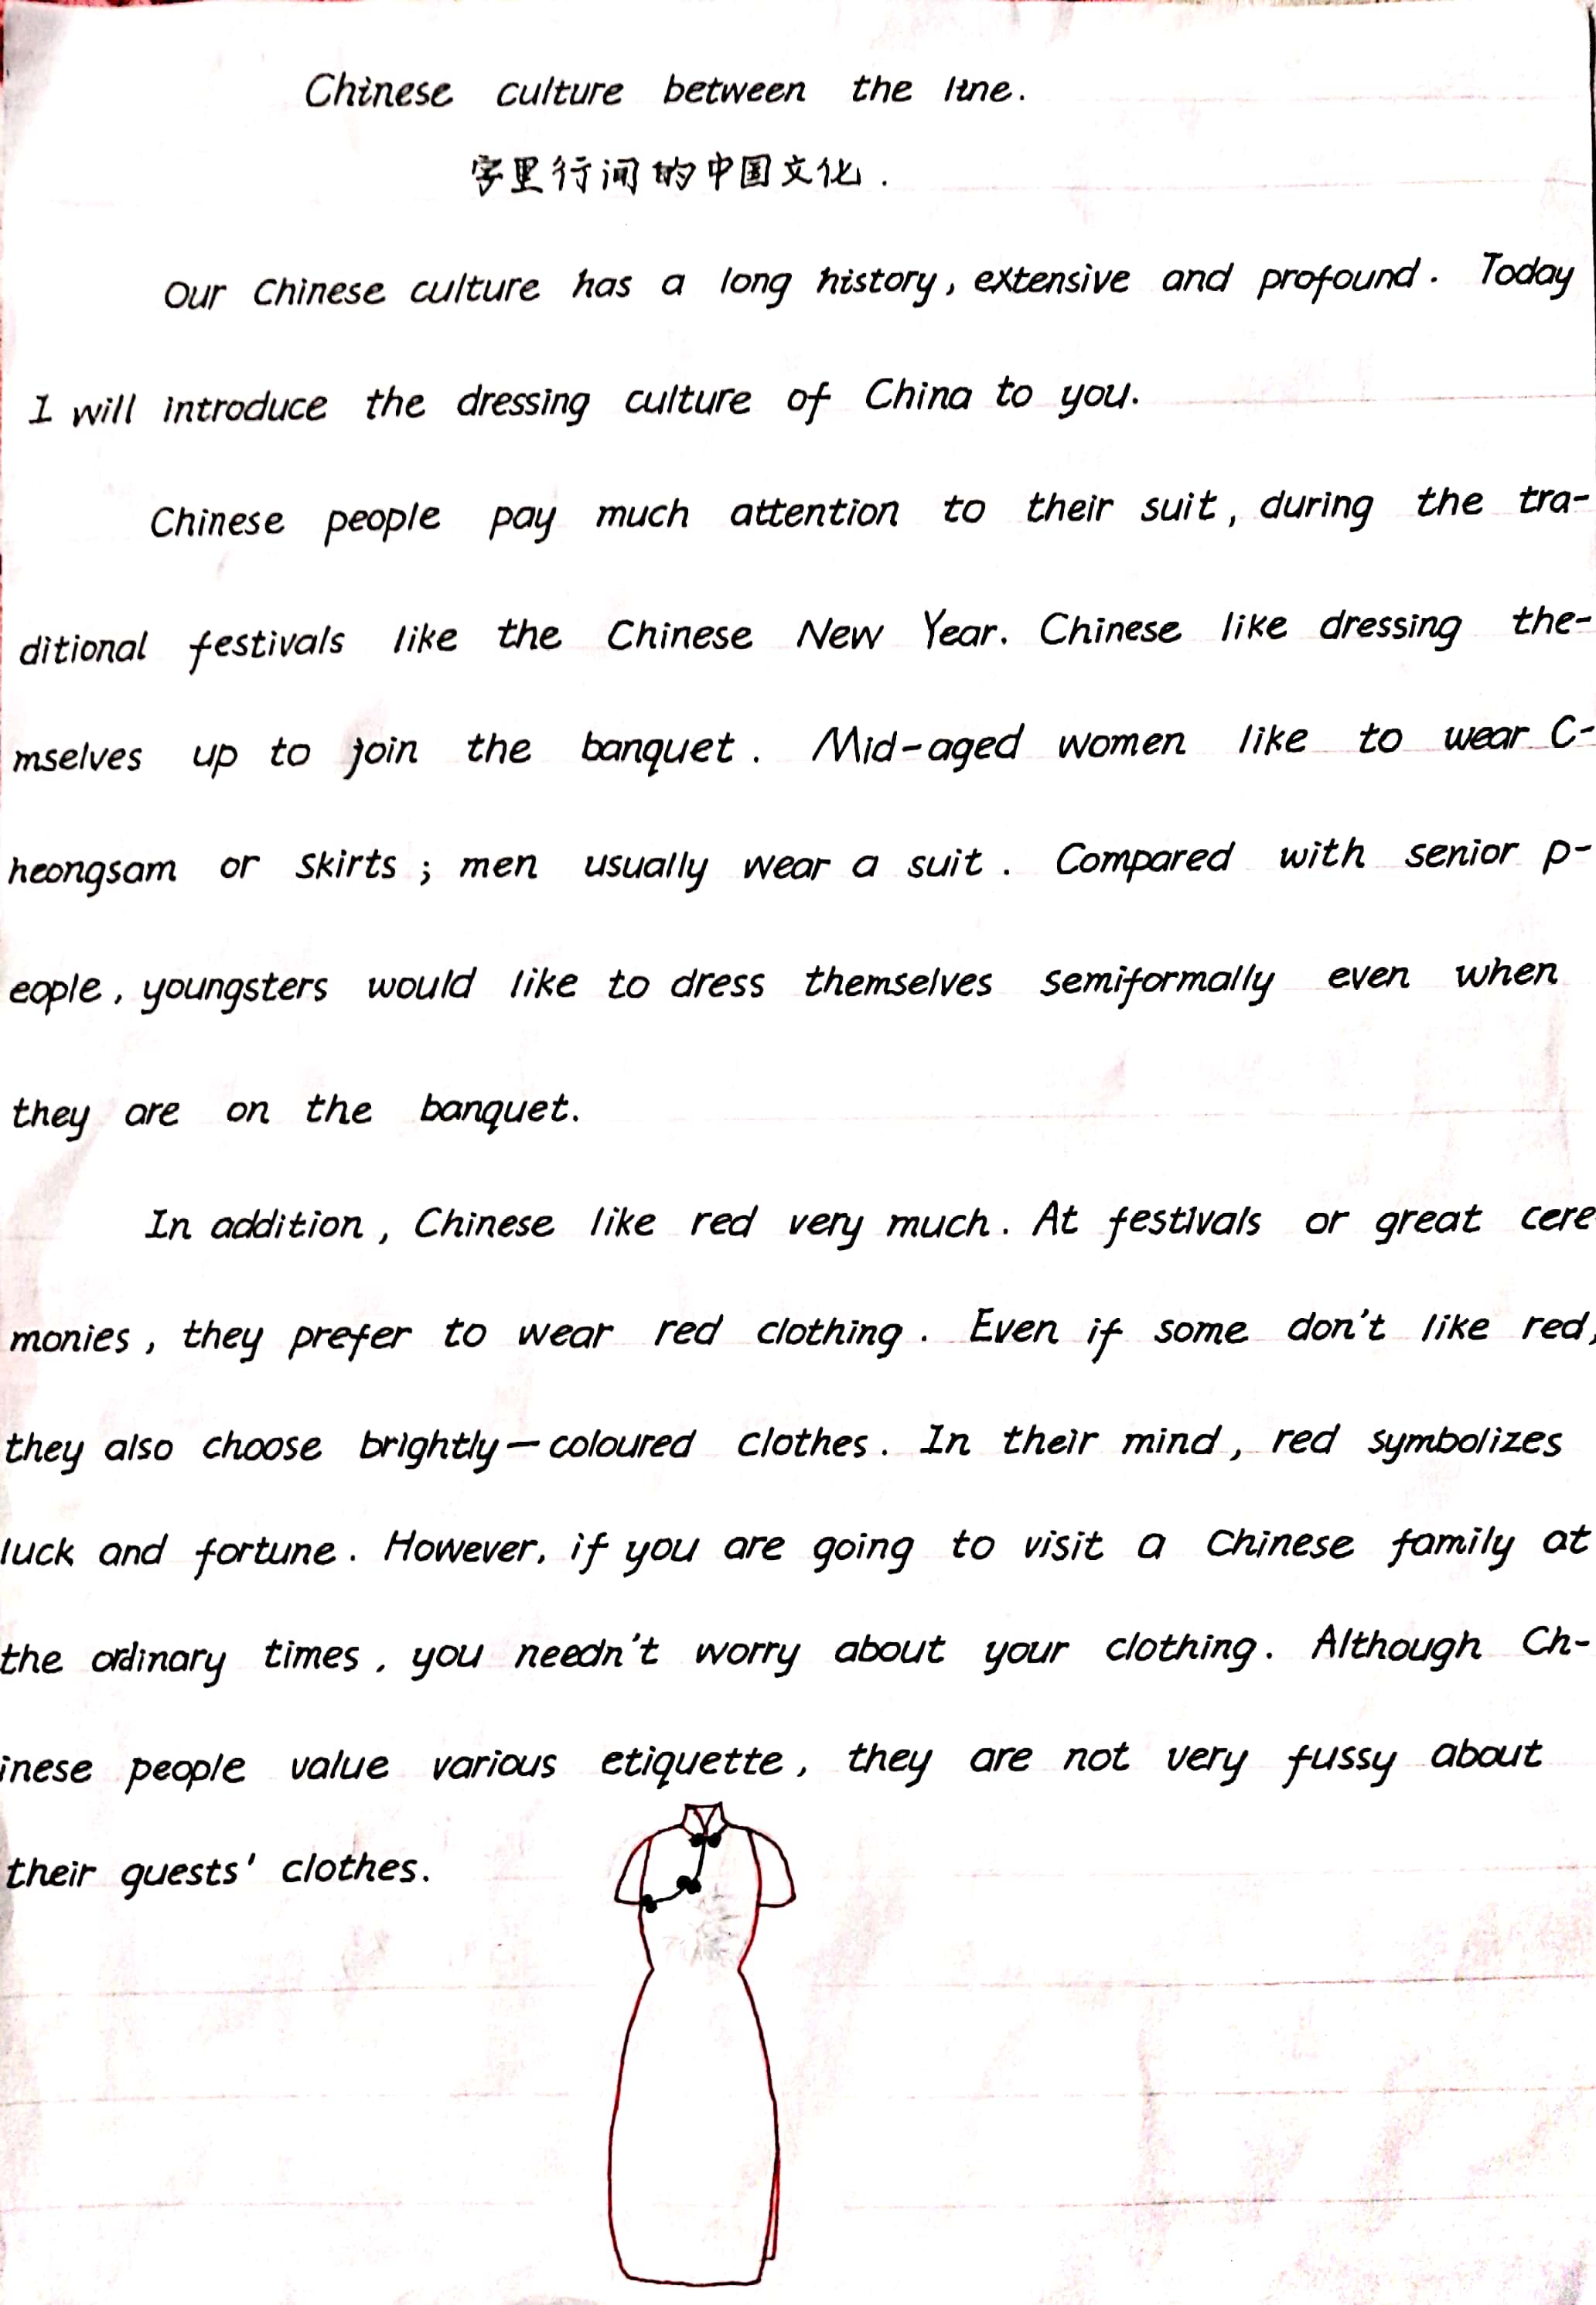 Chinese culture between the line.
字里行间的中国文化.
Our Chinese culture has a long history, extensive and profound. Today
I will introduce the dressing culture of China to you.
Chinese people pay much attention to their suit, during the tra-
ditional festivals like the Chinese New Year. Chinese like dressing the-
mselves up to join the banquet. Mid-aged women like to wear C-
heongsam or skirts; men usually wear a suit. Compared with senior p-
eople, youngsters would like to dress themselves semiformally even when
they are on the banquet.
In addition, Chinese like red very much. At festivals or great cere
monies, they prefer to wear red clothing. Even if some don't like red,
they also choose brightly-coloured clothes. In their mind, red symbolizes
luck and fortune. However, if you are going to visit a Chinese family at
the ordinary times, you needn't worry about your clothing. Although Ch-
inese people value various etiquette, they are not very fussy about
their guests' clothes.